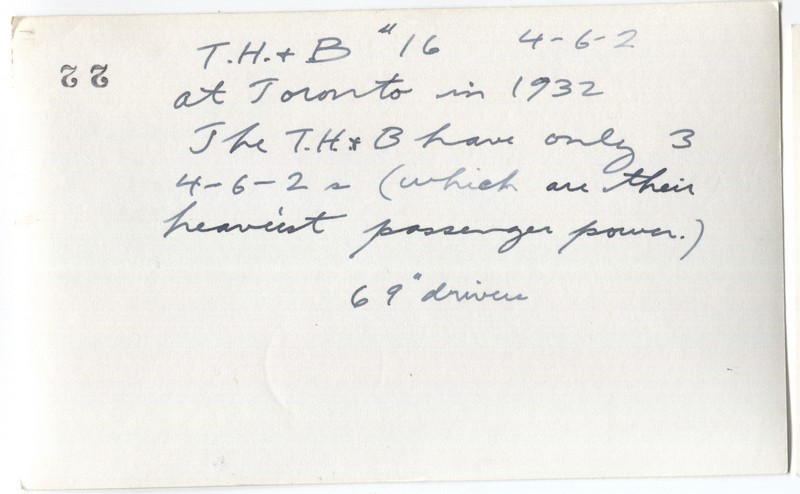 22
T.H.& B #16 4-6-2
at Toronto in 1932
The T.H & B have only 3
4-6-2 s (which are their
heaviest passenger power.)
69" drivers